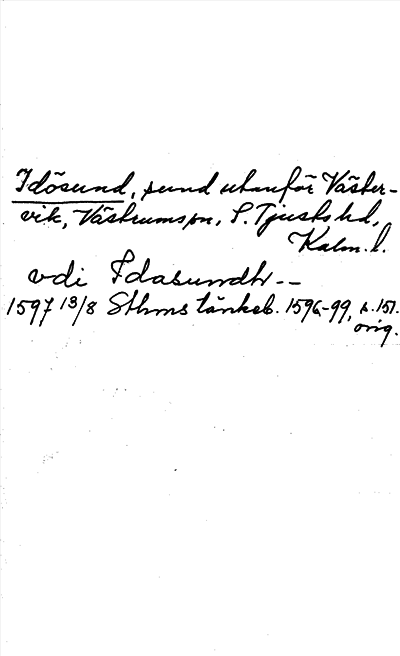 Idösund, sund utanför Väster-
vik, Västrums sn, S. Tjusts hd,
Kalm. l.
vdi Idasundh --
1597 13/8 Sthms tänkeb. 1596-99, s. 151.
orig.